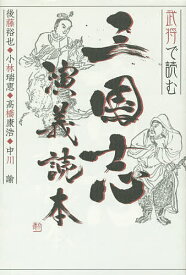 武将で読む
三国志
演義読本
後藤裕也◆小林瑞恵◆高橋康浩◆中川諭